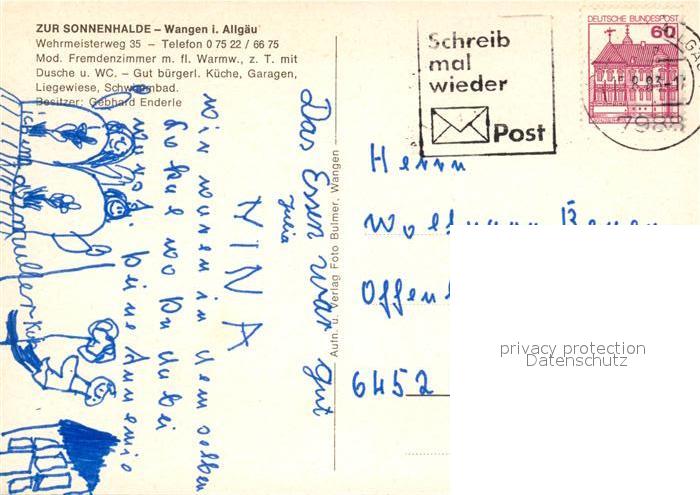 ZUR SONNENHALDE – Wangen i. Allgäu
Wehrmeisterweg 35 – Telefon 0 75 22 / 66 75
Mod. Fremdenzimmer m. fl. Warmw., z. T. mit
Dusche u. WC. – Gut bürgerl. Küche, Garagen,
Liegewiese, Schwimmbad.
Besitzer: Gebhard Enderle
Schreib
mal
wieder
Post
DEUTSCHE BUNDESPOST
60
7988
Das Essen war gut
Julia
NINA
wir waren in dem selben
lokal wo du bei
deine
Aufn. u. Verlag Foto Bulmer, Wangen
Herrn
Wolfgang
Offen
6452
privacy protection
Datenschutz